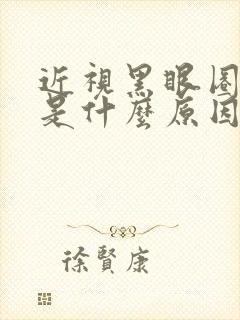 近視黑眼圈
是什麼原因
徐賢康